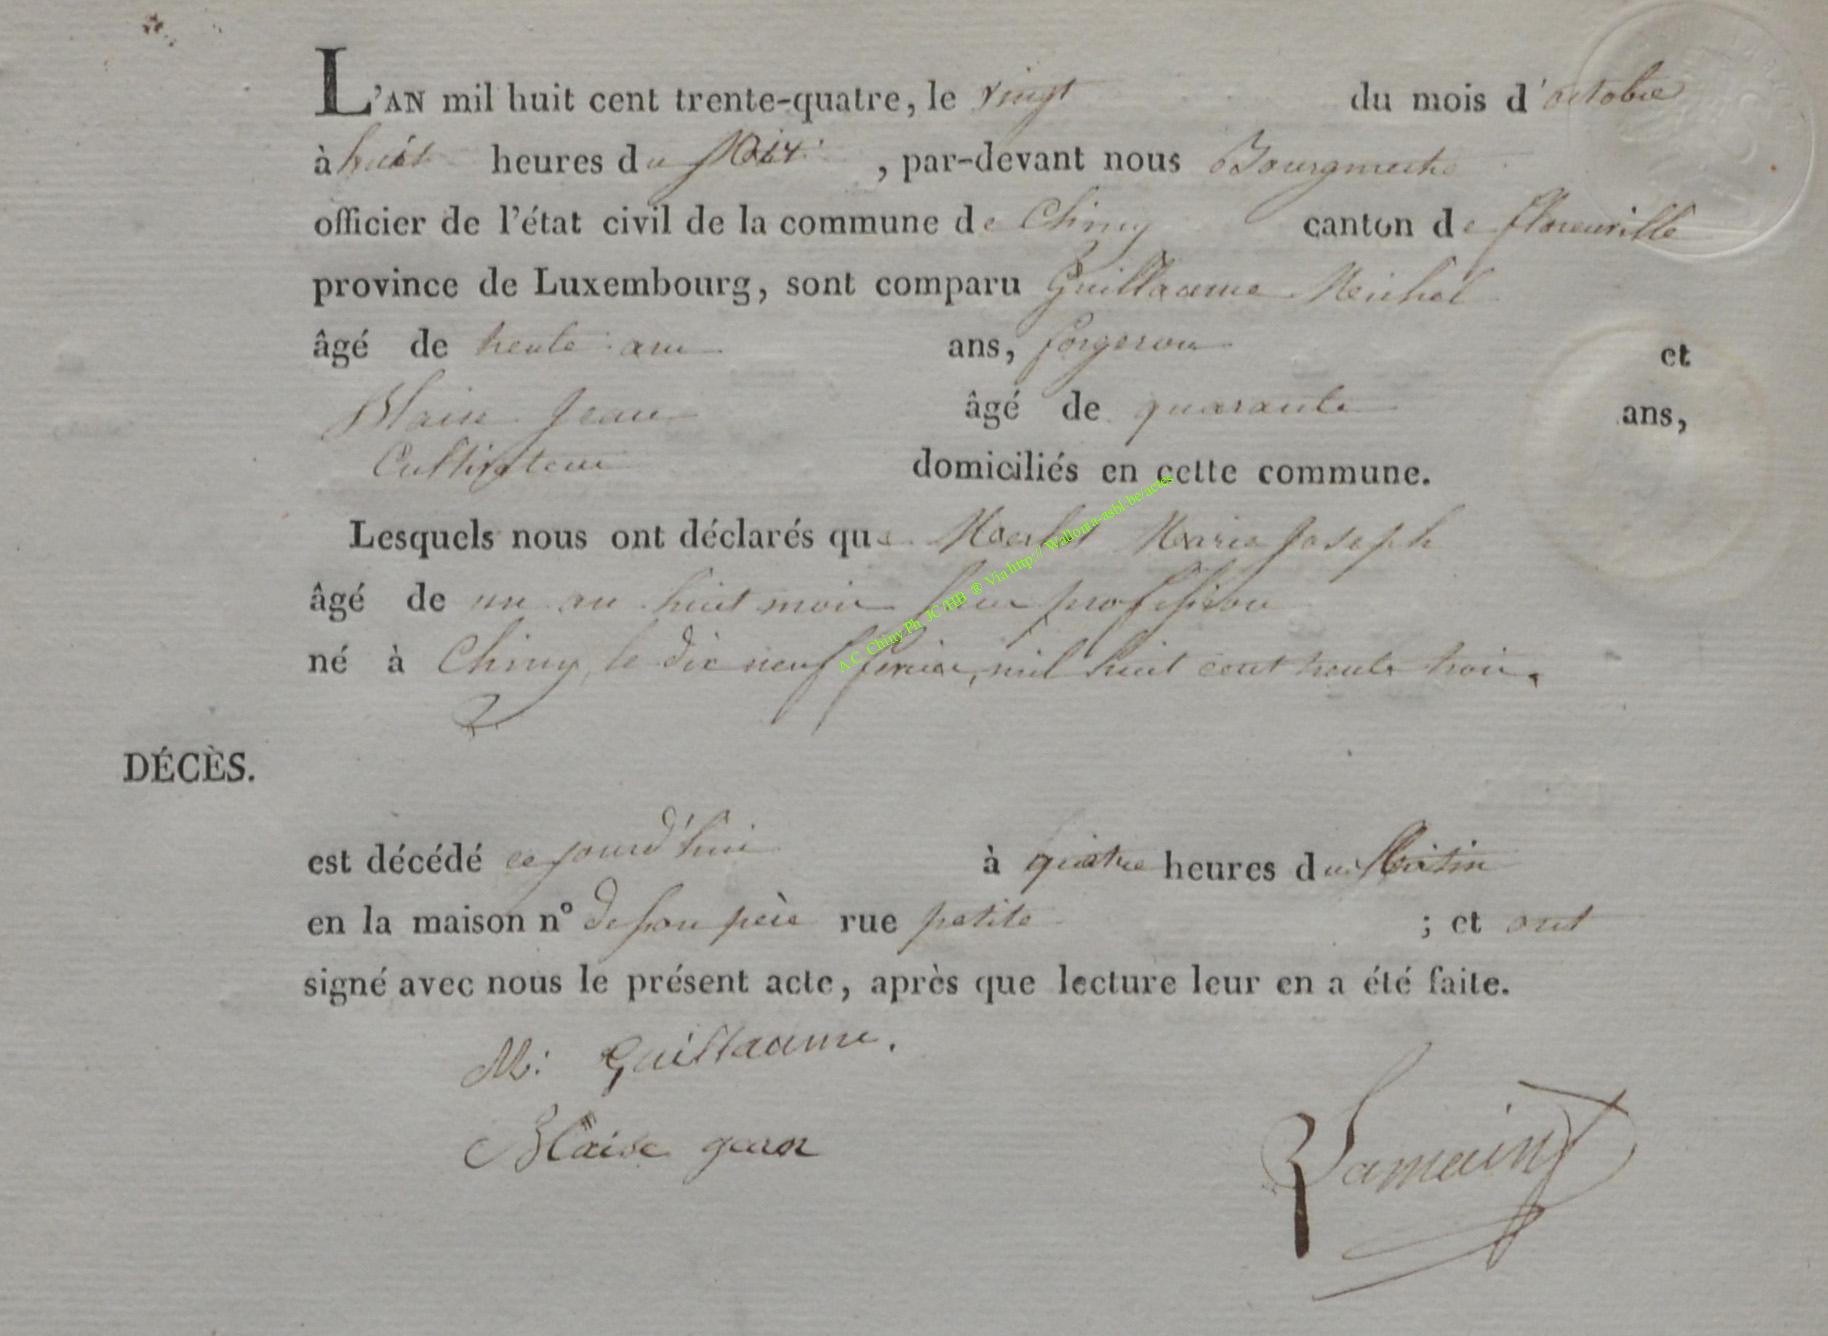 L'AN mil huit cent trente-quatre, le vingt du mois d'octobre
à huit heures du soir, par-devant nous Bourgmestre
officier de l'état civil de la commune de Chiny canton de florenville
province de Luxembourg, sont comparu Guillaume Michel
âgé de trente ans, forgeron et
Blaise Jean âgé de quarante ans,
Cultivateur domiciliés en cette commune.
Lesquels nous ont déclarés que Marie Joseph
âgé de un an huit mois profession
né à Chiny, le dix neuf fevrier, mil huit cent trente trois.
DÉCÈS.
est décédé cejourd'hui à quatre heures du Matin
en la maison n° de son père rue petite ; et ont
signé avec nous le présent acte, après que lecture leur en a été faite.
M: Guillaume.
Blaise jean
Lamain
A.C. Chiny Ph JC /HB ® Via http:// Wallonia-asbl.be/actes